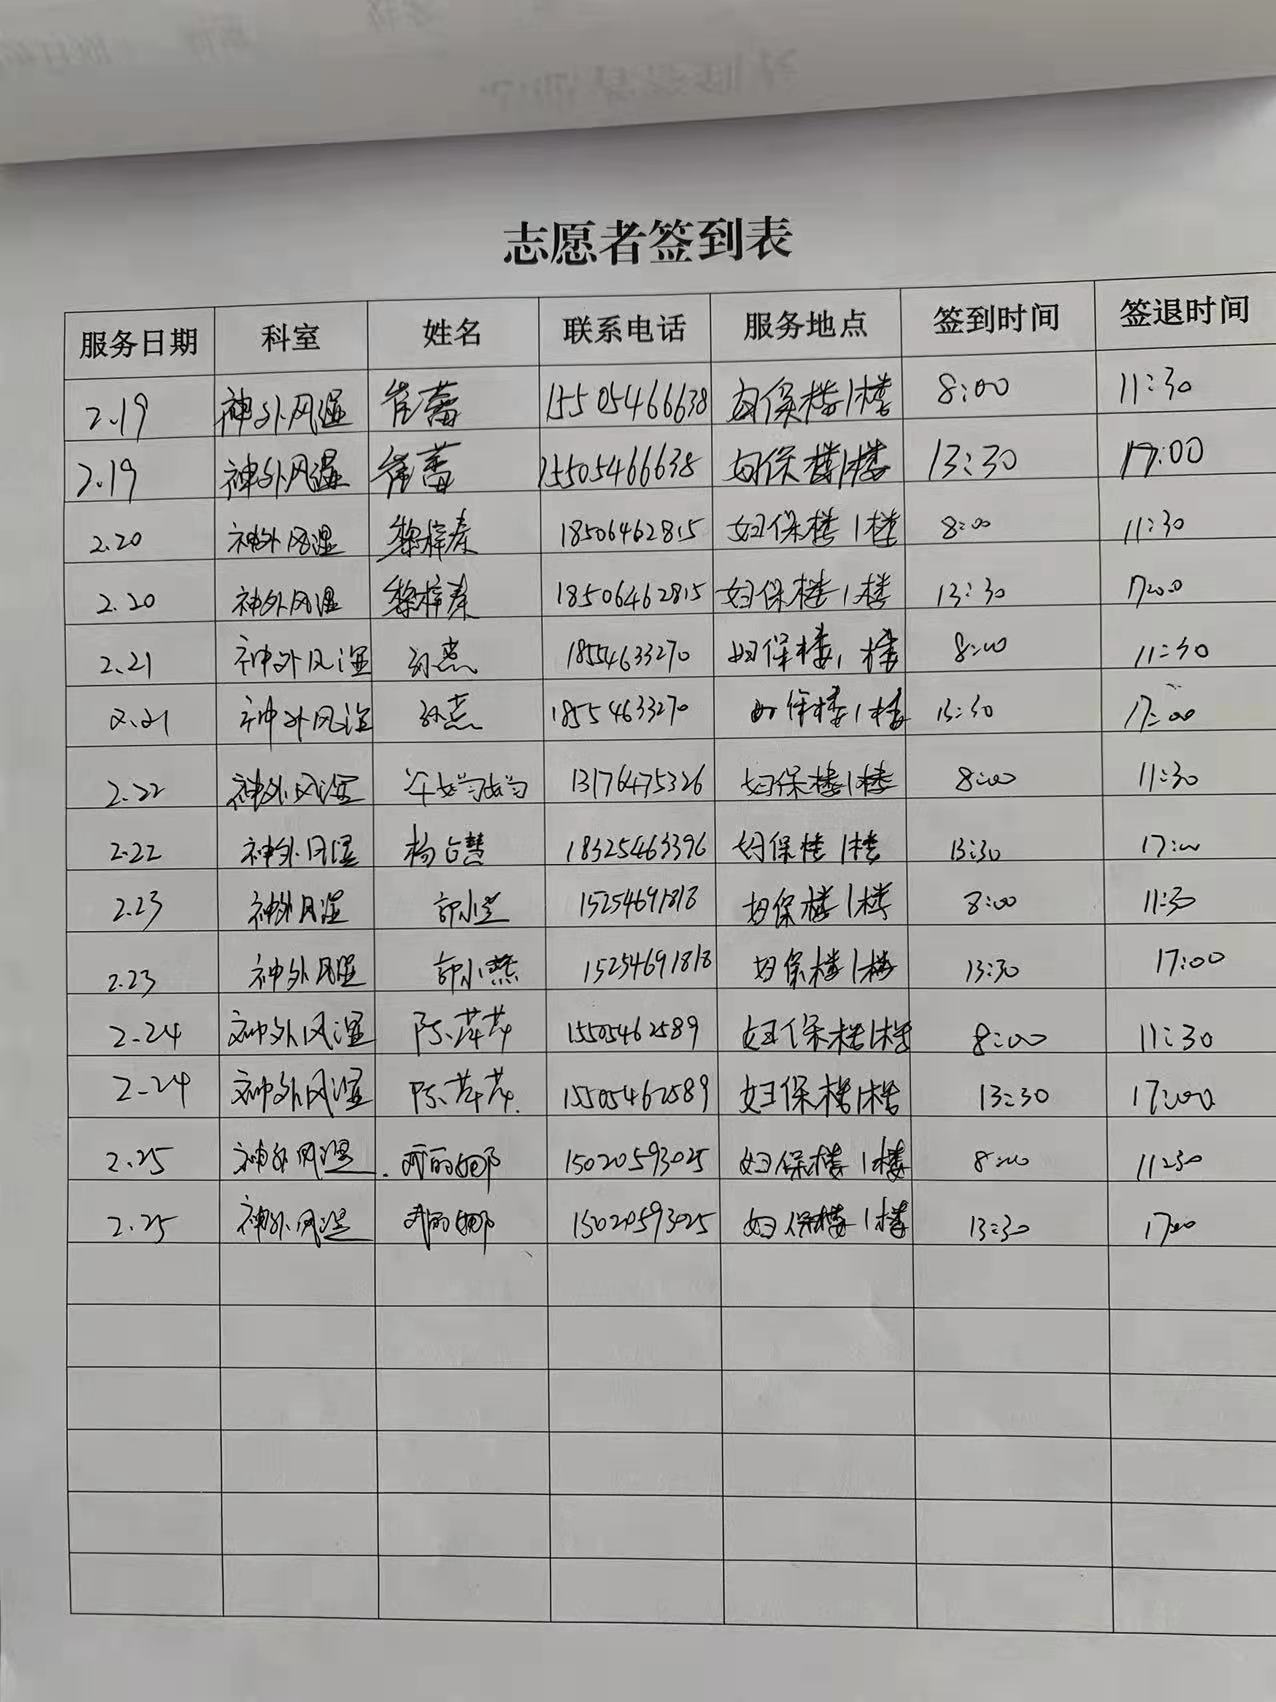 志愿者签到表
服务日期 科室 姓名 联系电话 服务地点 签到时间 签退时间
2.19 神外风湿 崔蕾 15505466638 妇保楼1楼 8:00 11:30
2.19 神外风湿 崔蕾 15505466638 妇保楼1楼 13:30 17:00
2.20 神外风湿 黎梓秦 18506462815 妇保楼1楼 8:00 11:30
2.20 神外风湿 黎梓秦 18506462815 妇保楼1楼 13:30 17:00
2.21 神外风湿 孙燕 18554633270 妇保楼1楼 8:00 11:30
2.21 神外风湿 孙燕 18554633270 妇保楼1楼 13:30 17:00
2.22 神外风湿 13176475326 妇保楼1楼 8:00 11:30
2.22 神外风湿 杨占慧 18325463396 妇保楼1楼 13:30 17:00
2.23 神外风湿 郭小 15254691818 妇保楼1楼 8:00 11:30
2.23 神外风湿 郭小燕 15254691818 妇保楼1楼 13:30 17:00
2.24 神外风湿 陈芹芹 15505462589 妇保楼1楼 8:00 11:30
2.24 神外风湿 陈芹芹 15505462589 妇保楼1楼 13:30 17:00
2.25 神外风湿 丽娜 15020593025 妇保楼1楼 8:00 11:30
2.25 神外风湿 丽娜 15020593025 妇保楼1楼 13:30 17:00